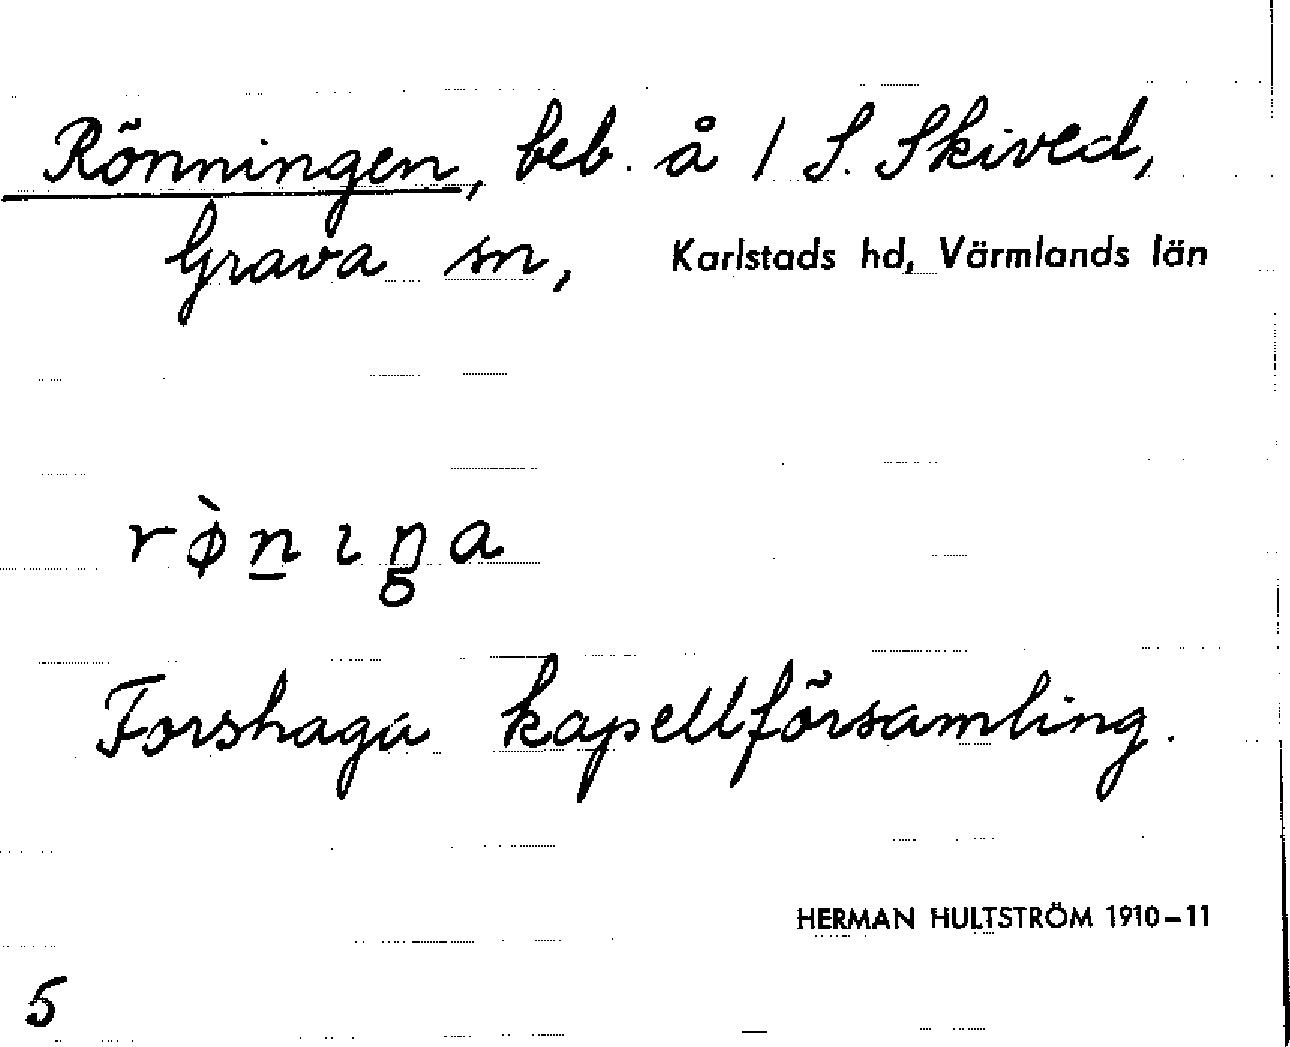 Rönningen, beb. å 1 S. Skived,
Grava sn, Karlstads hd, Värmlands län
rø̀n̲ıŋa
Forshaga kapellförsamling.
HERMAN HULTSTRÖM 1910–11
5